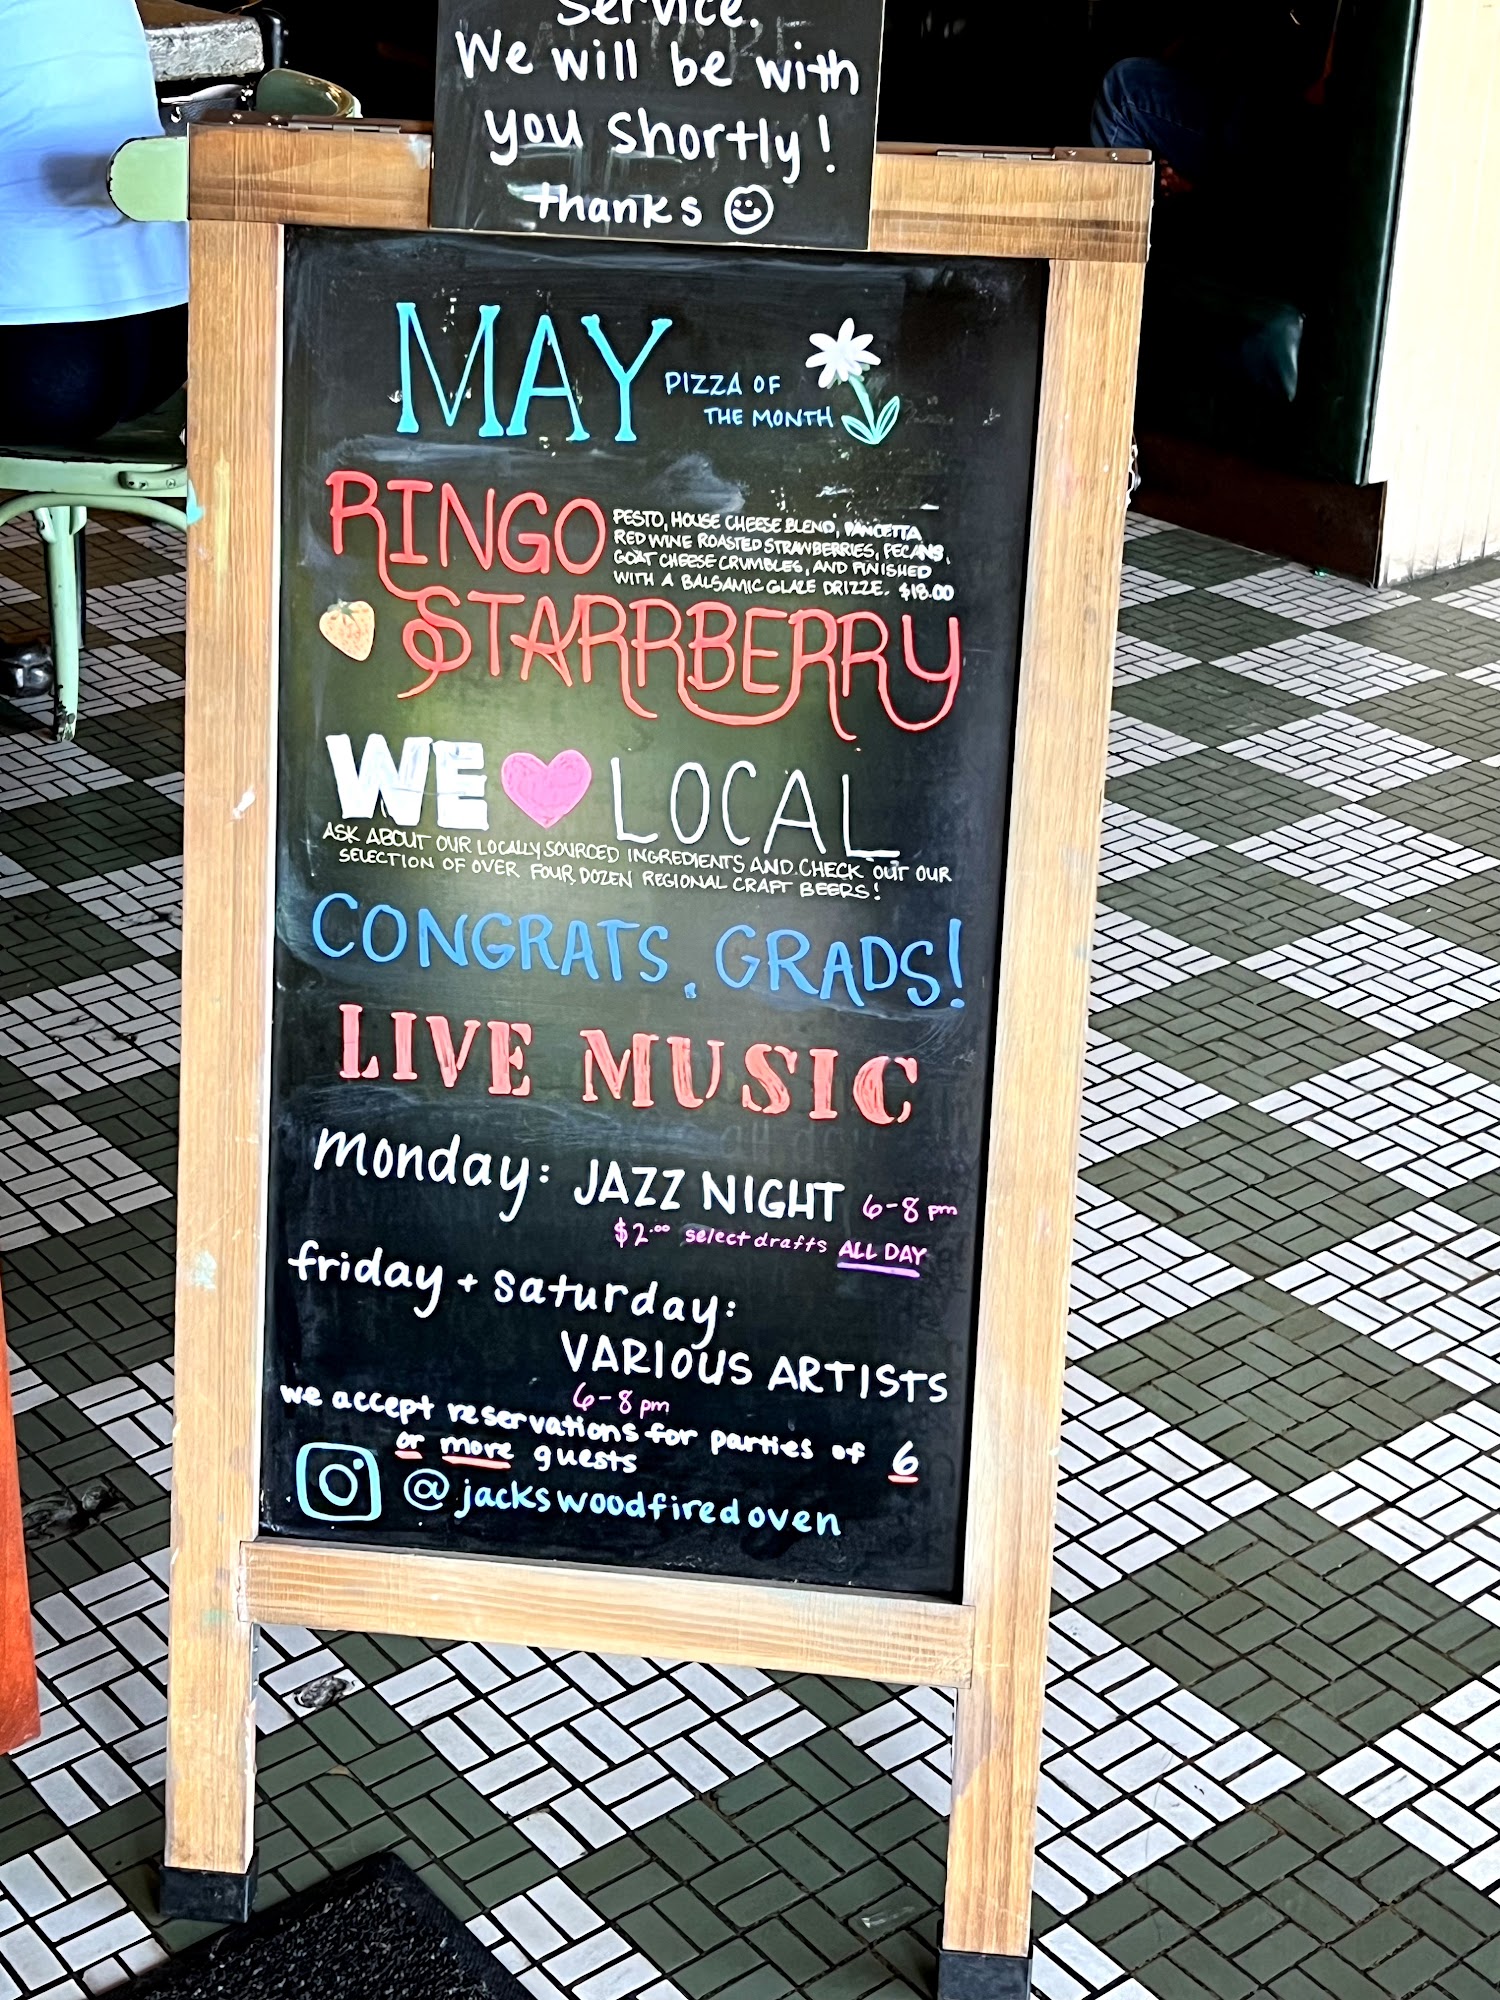 Service.
We will be with
you shortly!
thanks
MAY
PIZZA OF
THE MONTH
RINGO
PESTO, HOUSE CHEESE BLEND, PANCETTA
RED WINE ROASTED STRAWBERRIES, PECANS,
GOAT CHEESE CRUMBLES, AND FINISHED
WITH A BALSAMIC GLAZE DRIZZLE. $18.00
STARRBERRY
WE LOCAL
ASK ABOUT OUR LOCALLY SOURCED INGREDIENTS AND CHECK OUT OUR
SELECTION OF OVER FOUR DOZEN REGIONAL CRAFT BEERS!
CONGRATS, GRADS!
LIVE MUSIC
monday: JAZZ NIGHT 6-8 pm
$2.00 select drafts ALL DAY
friday + saturday:
VARIOUS ARTISTS
6-8 pm
we accept reservations for parties of 6
or more guests
@jackswoodfiredoven